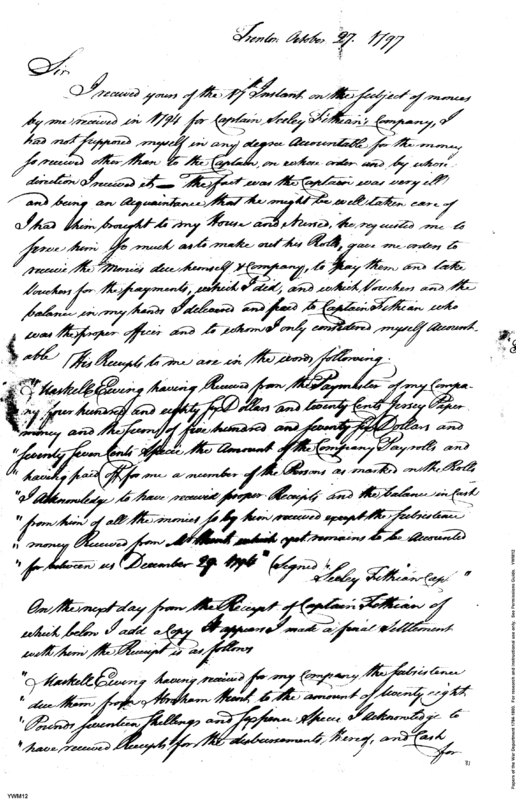 Trenton October 27. 1797
Sir
I received yours of the 17th Instant on the subject of monies
by me received in 1794 for Captain Seeley Fithian's Company, I
had not supposed myself in any degree Accountable for the money
so received other than to the Captain, on whose order and by whose
direction I received it — The fact was the Captain was very ill
and being an Acquaintance that he might be well taken care of
I had him brought to my House and Nursed, he requested me to
serve him so much as to make out his Rolls, gave me orders to
receive the Monies due himself & Company, to pay them and take
Vouchers for the payments, which I did, and which Vouchers and the
balance in my hands I delivered and paid to Captain Fithian who
was the proper officer and to whom I only considered myself Account-
able His Receipts to me are in the words following.
"Maskell Ewing having Received from the Paymaster of my Compa-
ny four hundred and eighty six Dollars and twenty Cents Jersey Paper
money and the sum of five hundred and seventy six Dollars and
"seventy seven Cents Specie the Amount of the Company Payrolls and
"having paid off for me a number of the Persons as marked on the Rolls
"I Acknowledge to have received proper Receipts and the balance in Cash
"from him of all the monies so by him received except the subsistence
" money Received from Mr Hunt which yet remains to be Accounted
" for between us December 29. 1794" (Signed
"Seeley Fithian Cap "
On the next day from the Receipt of Captain Fithian of
which below I add a Copy It appears I made a final Settlement
with him the Receipt is as follows
"Maskell Ewing having received for my Company the subsistence
" due them from Abraham Hunt, to the amount of twenty eight
" Pounds seventeen Shillings and sixpence Specie I Acknowledge to
" have received Receipts for the disbursements, thereof, and Cash
for
YWM12
Papers of the War Department 1784-1800. For research and instructional use only. See Permissions Guide. YWM12